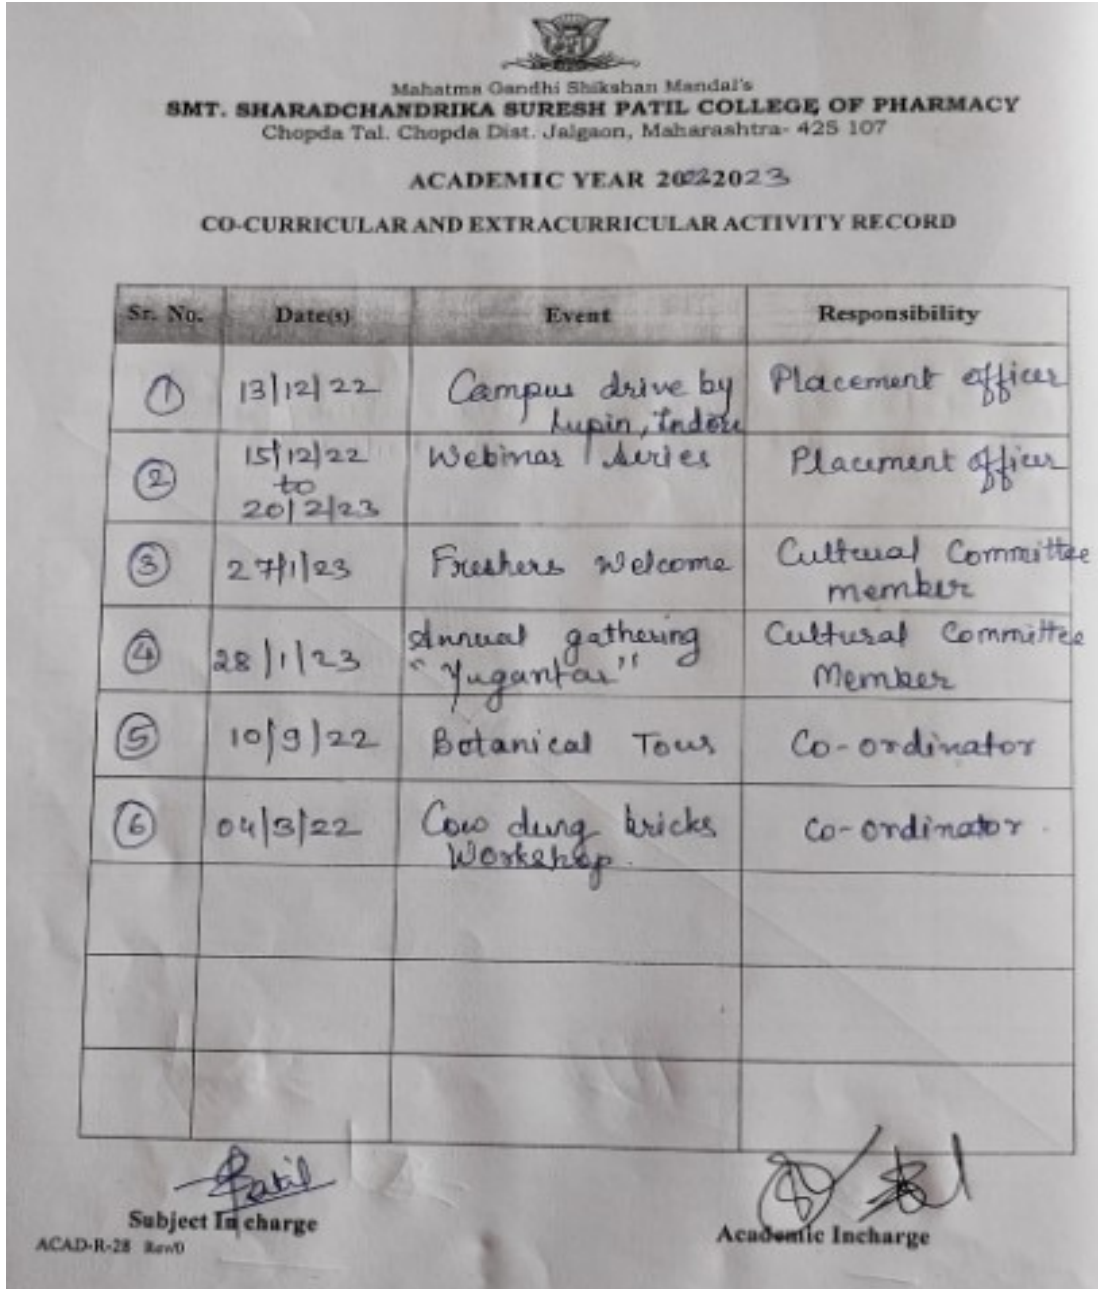 Mahatma Gandhi Shikshan Mandal's
SMT. SHARADCHANDRIKA SURESH PATIL COLLEGE OF PHARMACY
Chopda Tal. Chopda Dist. Jalgaon, Maharashtra- 425 107
ACADEMIC YEAR 20222023
CO-CURRICULAR AND EXTRACURRICULAR ACTIVITY RECORD
Sr. No. Date(s) Event Responsibility
1 13/12/22 Campus drive by Placement officer
Lupin, Indore
2 15/12/22 Webinar series Placement officer
to
20/2/23
3 27/1/23 Freshers Welcome Cultural Committee
member
4 28/1/23 Annual gathering Cultural Committee
"Yugantar" Member
5 10/9/22 Botanical Tour Co-ordinator
6 04/3/22 Cow dung bricks Co-ordinator
Workshop.
Patil
Subject In charge
Academic Incharge
ACAD-R-28 Rev0